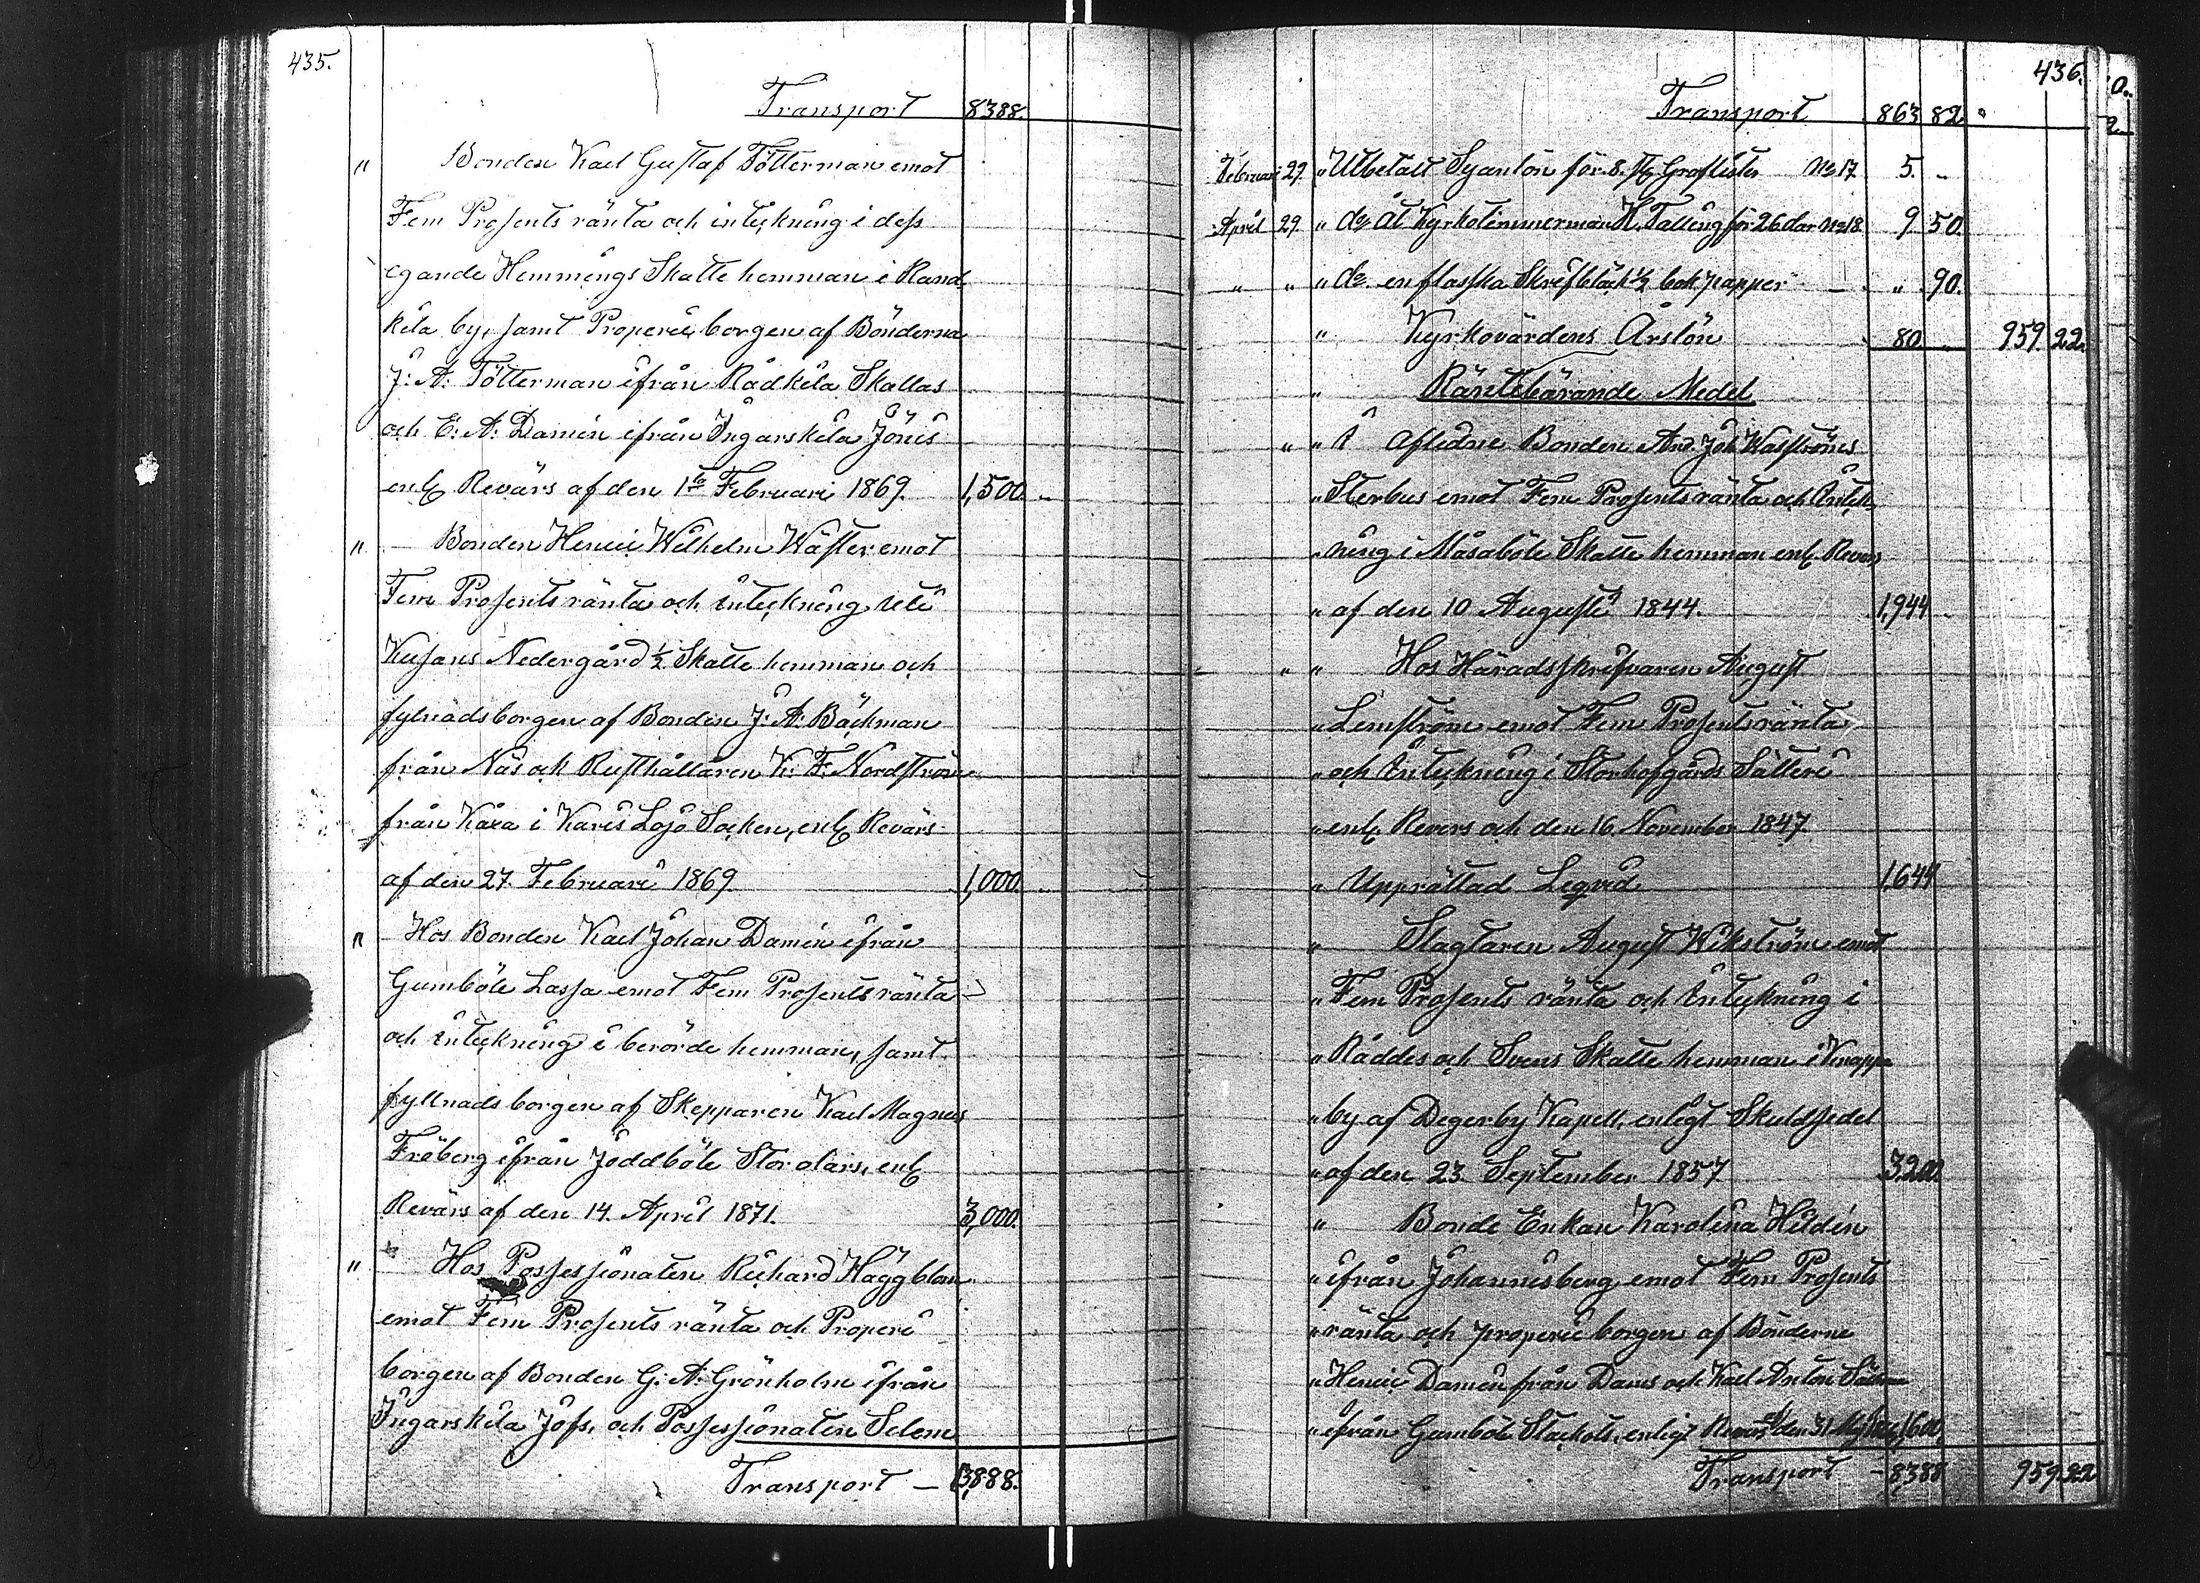 435.
Transport 8388.
" Bonden Karl Gustaf Tötterman emot
Fem Prosents ränta och inteckning i dess
egande Hemmings Skatte hemman i Rand-
kila by, samt Proprie borgen af Bönderna
J: A: Tötterman ifrån Rådkila Skallas
och E: A: Damén ifrån Ingarskila Jönis
enl. Revärs af den 1sta Februari 1869. 1,500 "
" Bonden Henric Wilhelm Wäster emot
Fem Prosents ränta och inteckning uti
Kusans Nedergård ½ Skatte hemman och
fylnadsborgen af Bonden J: A: Bäckman
från Näs och Rusthållaren K: F. Nordström
från Kåra i Karis Lojo Socken, enl. Revärs
af den 27. Februari 1869 1,000.
" Hos Bonden Karl Johan Damén ifrån
Gumböle Lassa emot Fem Prosents ränta
och inteckning i berörde hemman, samt
fyllnads borgen af Skepparen Karl Magnus
Fröberg ifrån Joddböle Storolars, enl.
Revärs af den 14. April 1871. 3,000.
" Hos Possessionaten Richard Häggblom
emot Fem Prosents ränta och Proprie
borgen af Bonden G: A: Grönholm ifrån
Ingarskila Jofs, och Possessionaten Selem
Transport — 13,888.
436.
Transport 863 82 "
Februari 29. " Utbetalt Syarlön för 8. st. Graflister No 17 5. "
April 29. " do åt Kyrkotimmerman H. Talling för 26 dar No 18 9 50.
" " " do en flasska Skrifbläck ½ bok papper — " 90.
" Kyrkovärdens Årslön 80 " 959 22.
" Räntebärande Medel
" " I Aflidne Bonden And. Joh Wasströms
" Sterbus emot Fem Prosents ränta och Inteck-
" ning i Måsaböle Skatte hemman enl. Revers
" af den 10 Augusti 1844. 1,944 "
" " Hos Häradsskrifvaren August
" Lemström emot Fem Prosents ränta
" och Inteckning i Storhofgårds Säteri
" enl. Revers och den 16. November 1847.
" Upprättad Liqvid 1,644
" Slagtaren August Wikström emot
" Fem Prosents ränta och Inteckning i
" Räddes och Svens Skatte hemman i Knapp-
" by af Degerby Kapell, enligt Skuldsedel
" af den 23. September 1857 3,200.
" Bonde Enkan Karolina Hildén
" ifrån Johannisberg emot Fem Prosents
" ränta och proprie borgen af Bönderne
" Henric Damén från Dams och Karl Anton
" ifrån Gumböle Stackols, enligt Revers af den 31 Maj 1,600
Transport — 8388 959 22